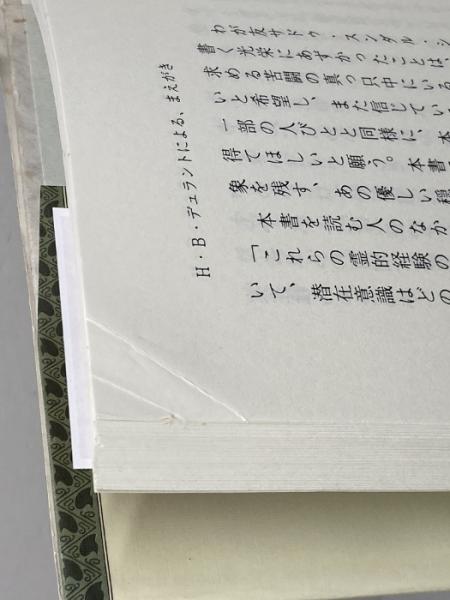 H・B・デュラントによる、まえがき
わが友サドゥ・スンダル・シ
書く光栄にあずかったことは、
求める苦闘の真っ只中にいる
いと希望し、また信じてい
一部の人びとと同様に、本
得てほしいと願う。本書
象を残す、あの優しい穏
本書を読む人のなか
「これらの霊的経験の
いて、潜在意識はどの